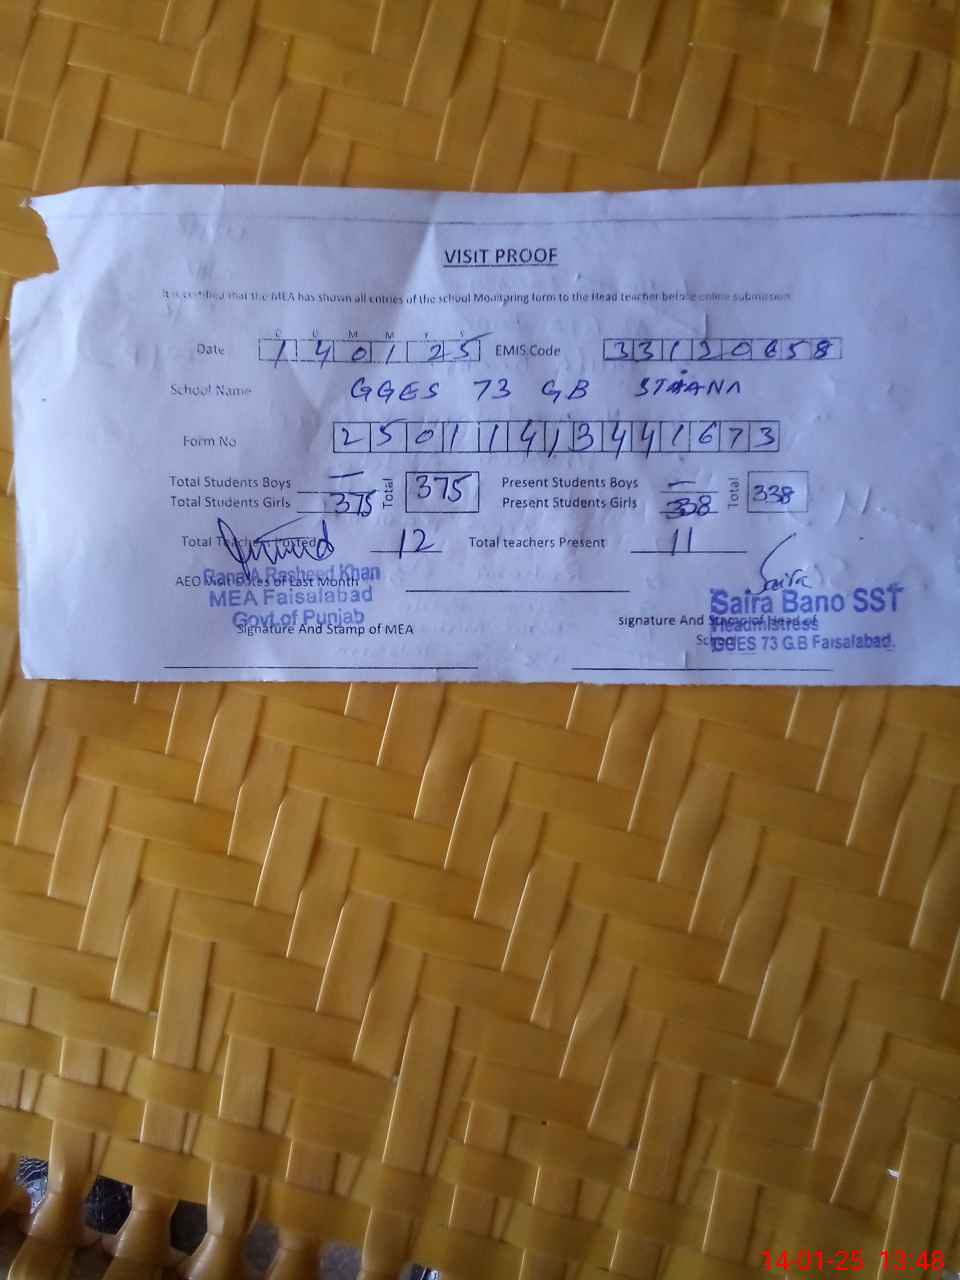 VISIT PROOF
It is certified that the MEA has shown all entries of the school Monitoring form to the Head teacher before online submission
D D M M Y Y
Date 140125 EMIS Code 33120658
School Name GGES 73 GB
Form No 25011413441673
Total Students Boys — Total 375 Present Students Boys — Total 338
Total Students Girls 375 Present Students Girls 338
Total Teachers Posted 12 Total teachers Present 11
AEO Visit Dates of Last Month
Rana A Rasheed Khan
MEA Faisalabad
Govt of Punjab
Signature And Stamp of MEA
Saira
Saira Bano SST
Headmistress
GGES 73 G.B Faisalabad.
signature And Stamp of Head of
School
14-01-25 13:48